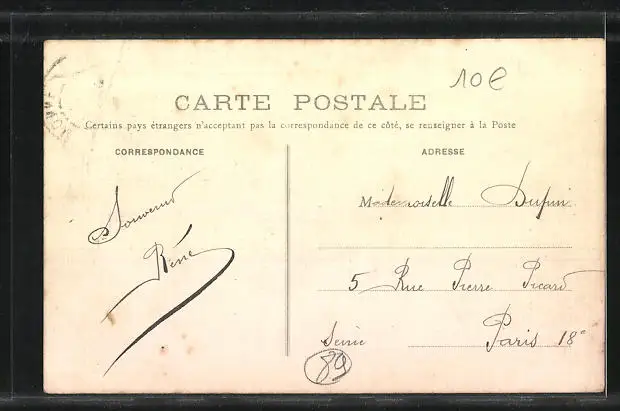 10€
CARTE POSTALE
Certains pays étrangers n'acceptant pas la correspondance de ce côté, se renseigner à la Poste
CORRESPONDANCE
Souvenir
René
ADRESSE
Mademoiselle Dupuis
5 Rue Pierre Picard
Seine Paris 18e